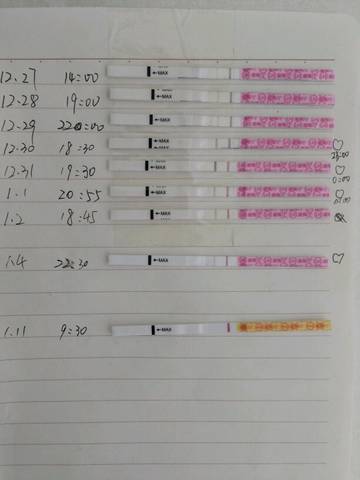 12.27 14:00 ←MAX
12.28 19:00 ←MAX
12.29 22:00 ←MAX
12.30 18:30 ←MAX
23:00
12.31 19:30 ←MAX
0:00
1.1 20:55 ←MAX
1.2 18:45 ←MAX
1.4 22:30 ←MAX
1.11 9:30 ←MAX